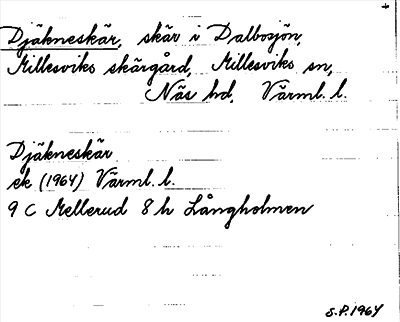 +
Djäkneskär, skär i Dalbosjön,
Millesviks skärgård, Millesviks sn,
Näs hd, Värml. l.
Djäkneskär
ek (1964) Värml. l.
9 C Mellerud 8 h Långholmen
S.P. 1964